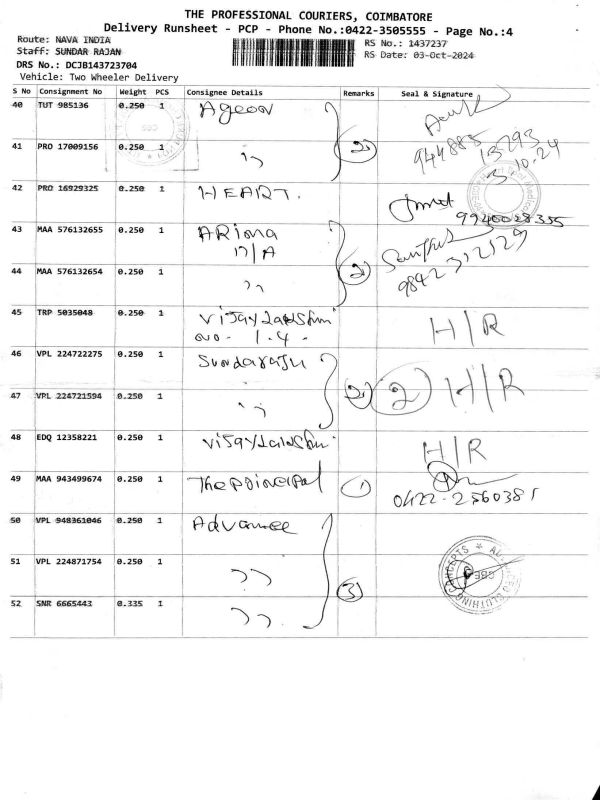 THE PROFESSIONAL COURIERS, COIMBATORE
Delivery Runsheet - PCP - Phone No.:0422-3505555 - Page No.:4
Route: NAVA INDIA
RS No.: 1437237
Staff: SUNDAR RAJAN
RS Date: 03-Oct-2024
DRS No.: DCJB143723704
Vehicle: Two Wheeler Delivery
S No Consignment No Weight PCS Consignee Details Remarks Seal & Signature
40 TUT 985136 0.250 1 Ageon
41 PRO 17009156 0.250 1 " 2
944885 13293
3.10.24
42 PRO 16929325 0.250 1 HEART.
9940028335
43 MAA 576132655 0.250 1 ARioma
n/A
Santhus
44 MAA 576132654 0.250 1 " 2 9842312129
45 TRP 5035048 0.250 1 Vijaylakshmi H/R
no. 1.4.
46 VPL 224722275 0.250 1 Sundaraju
47 VPL 224721594 0.250 1 " 2 2 H/R
48 EDQ 12358221 0.250 1 Vijaylakshmi H/R
49 MAA 943499674 0.250 1 The poincepal 1 0422-2560381
50 VPL 948361046 0.250 1 Advance
51 VPL 224871754 0.250 1 " 3
CLOTHING CONCEPTS
CBE
52 SNR 6665443 0.335 1 "